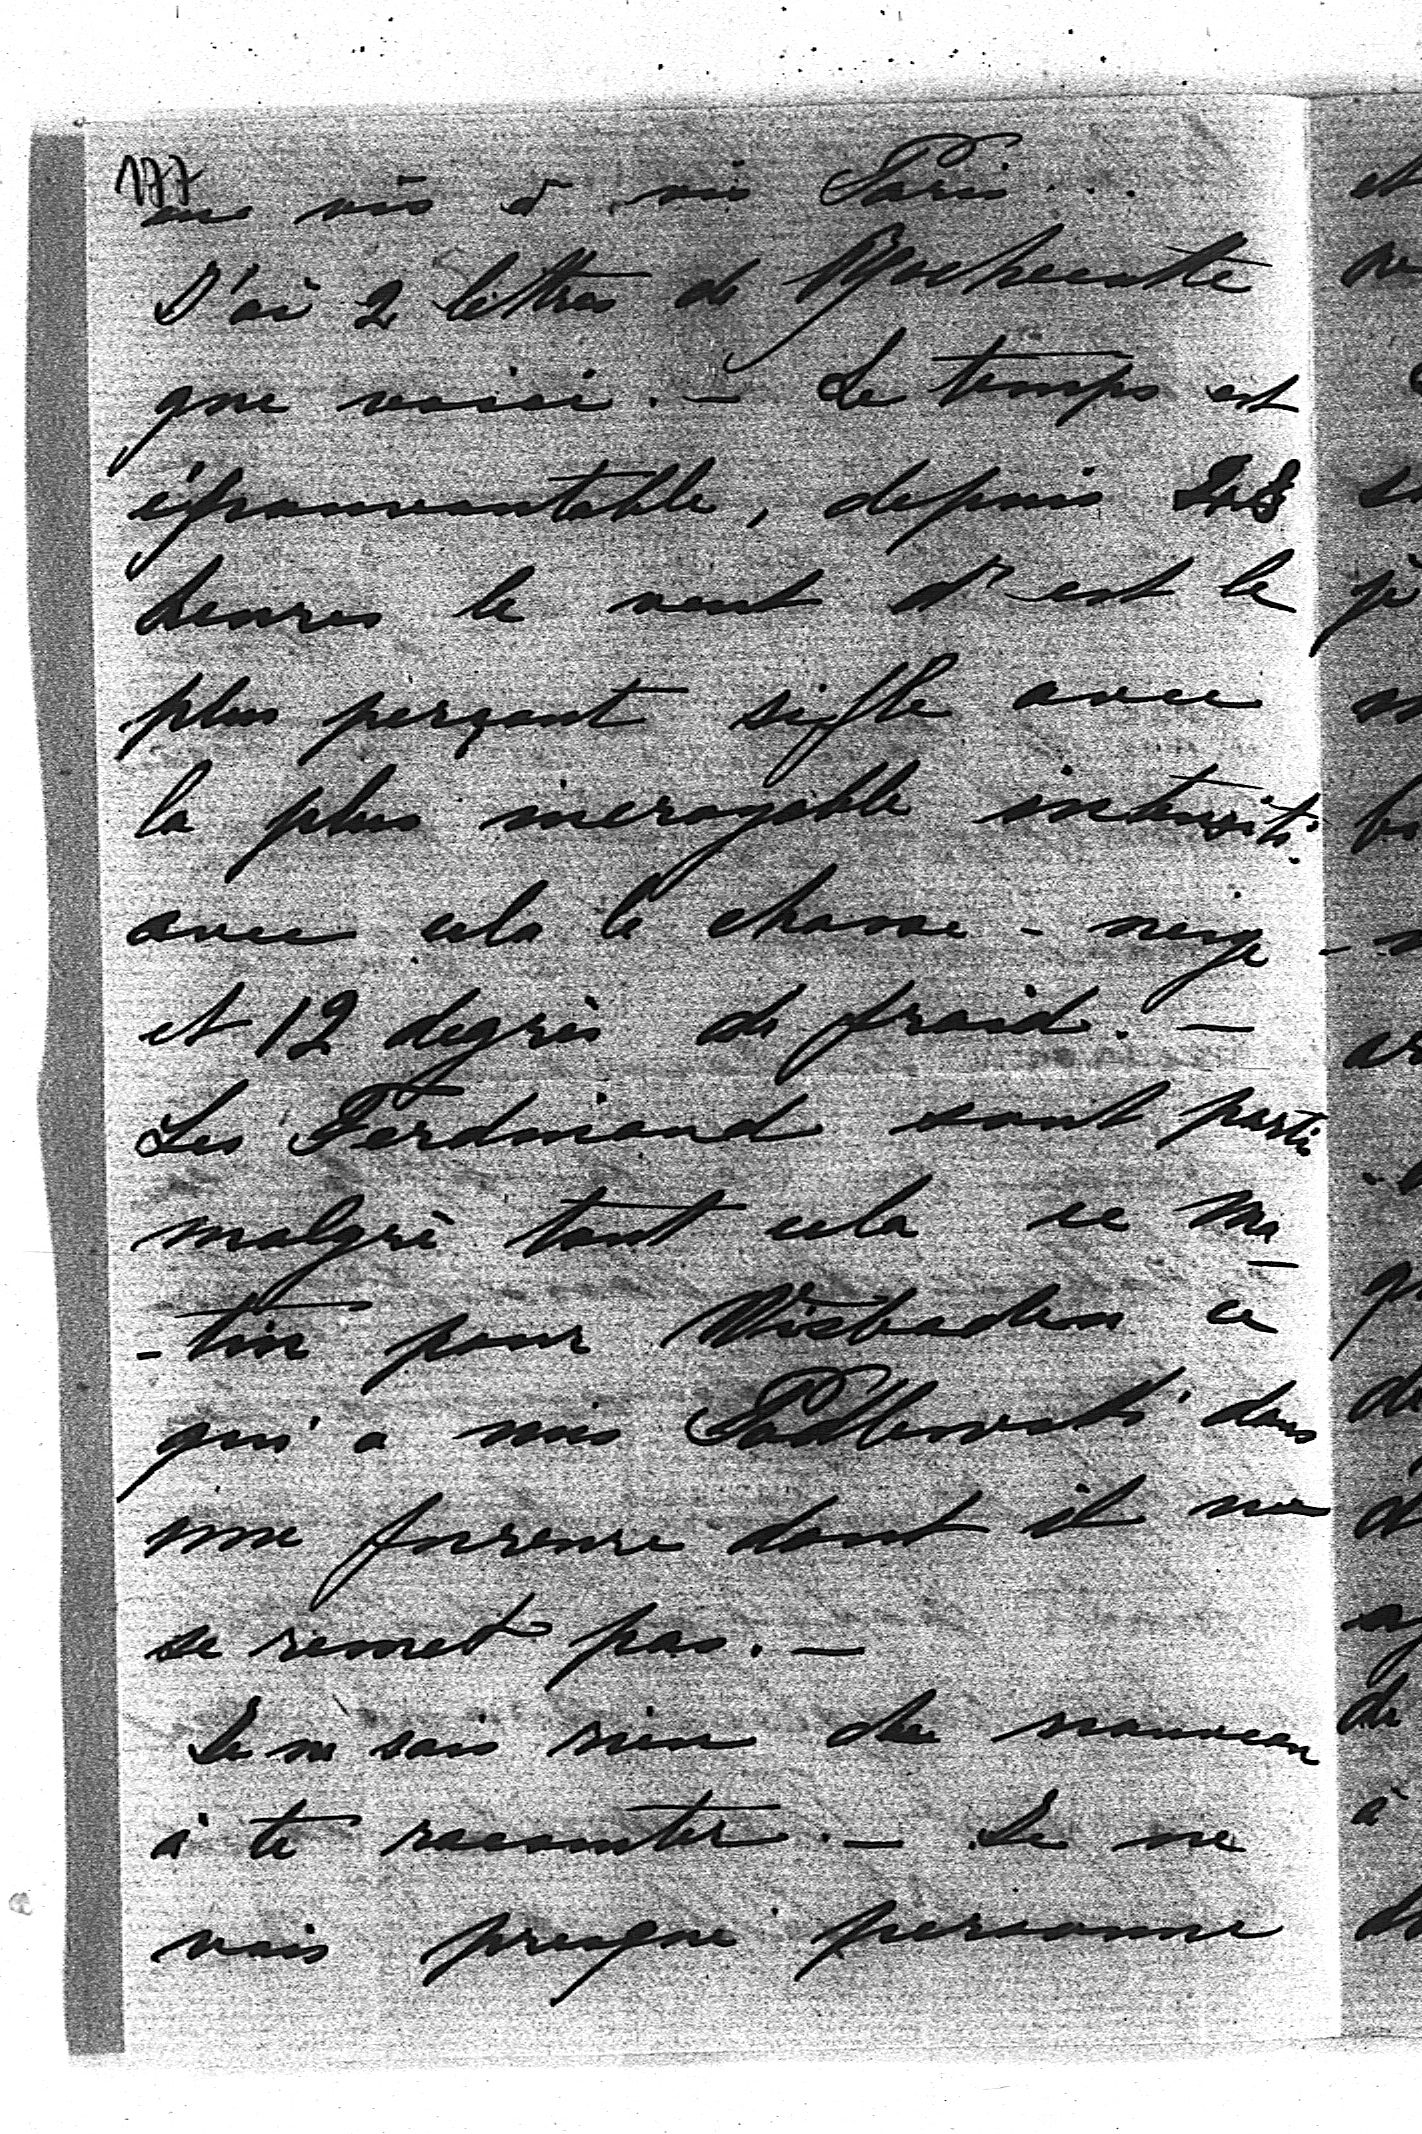 177
vis à vis Paris...
J'ai 2 lettres de
que voici. — Le temps est
épouvantable, depuis 48
heures le vent d'est le
plus perçant sifle avec
la plus incroyable intensité.
avec cela le chasse-neige -
et 12 degrés de froid. —
Les Ferdinand sont partis
malgré tout cela ce ma-
-tin pour Wisbaden ce
qui a mis Podbowski dans
une fureure dont il ne
se remet pas. —
Je ne sais rien de nouveau
à te raconter. — Je ne
vois presque personne